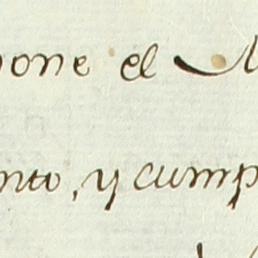 pone el
nto, y cump